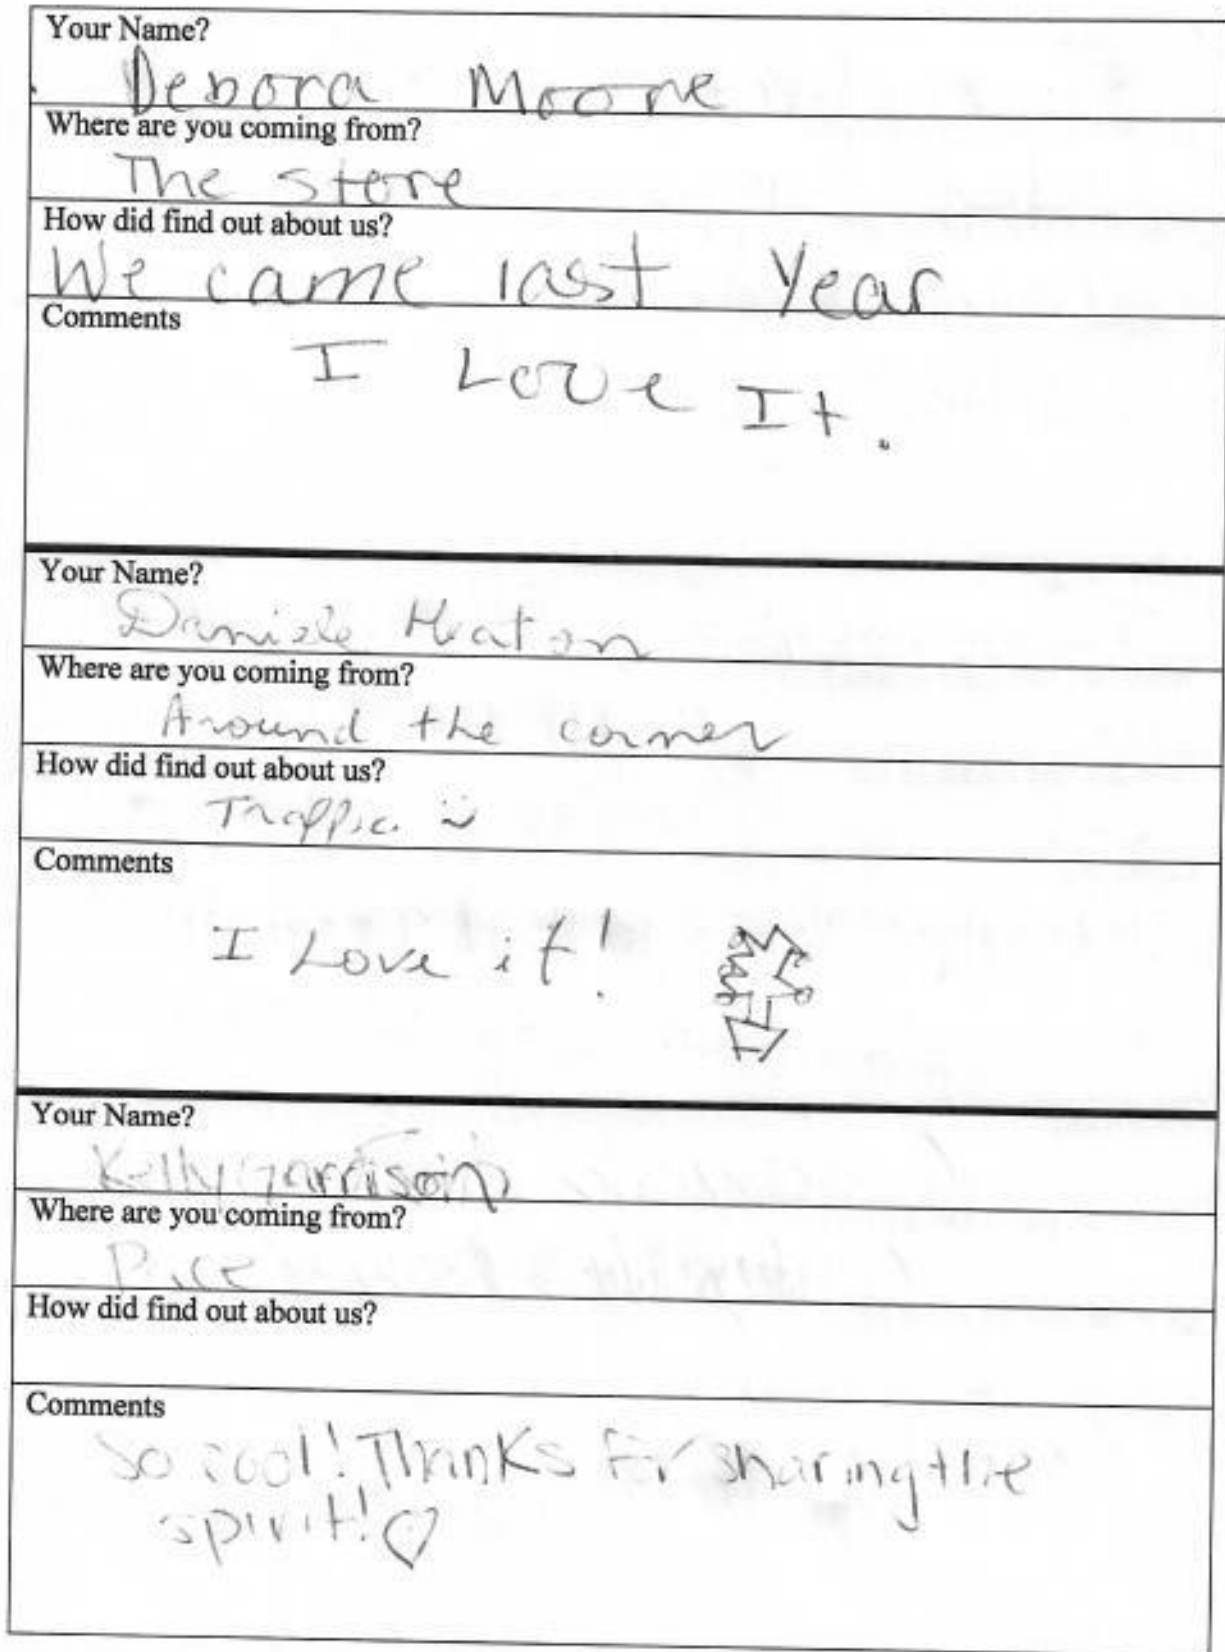 Your Name?
Debora Moore
Where are you coming from?
The store
How did find out about us?
We came last Year
Comments
I Love It.
Your Name?
Daniele Heaton
Where are you coming from?
Around the corner
How did find out about us?
Traffic
Comments
I Love it!
Your Name?
Kelly Garrison
Where are you coming from?
Pace
How did find out about us?
Comments
So cool! Thanks For sharing the
spirit!